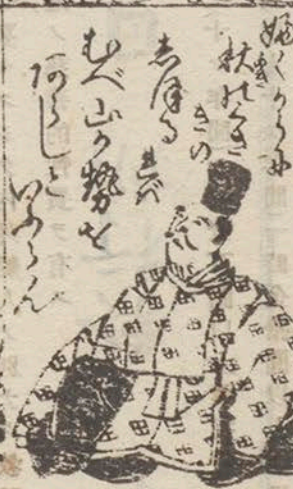 吹くからに
秋のくさ
きの
しほるれば
むべ山風を
あらしと
いふらん